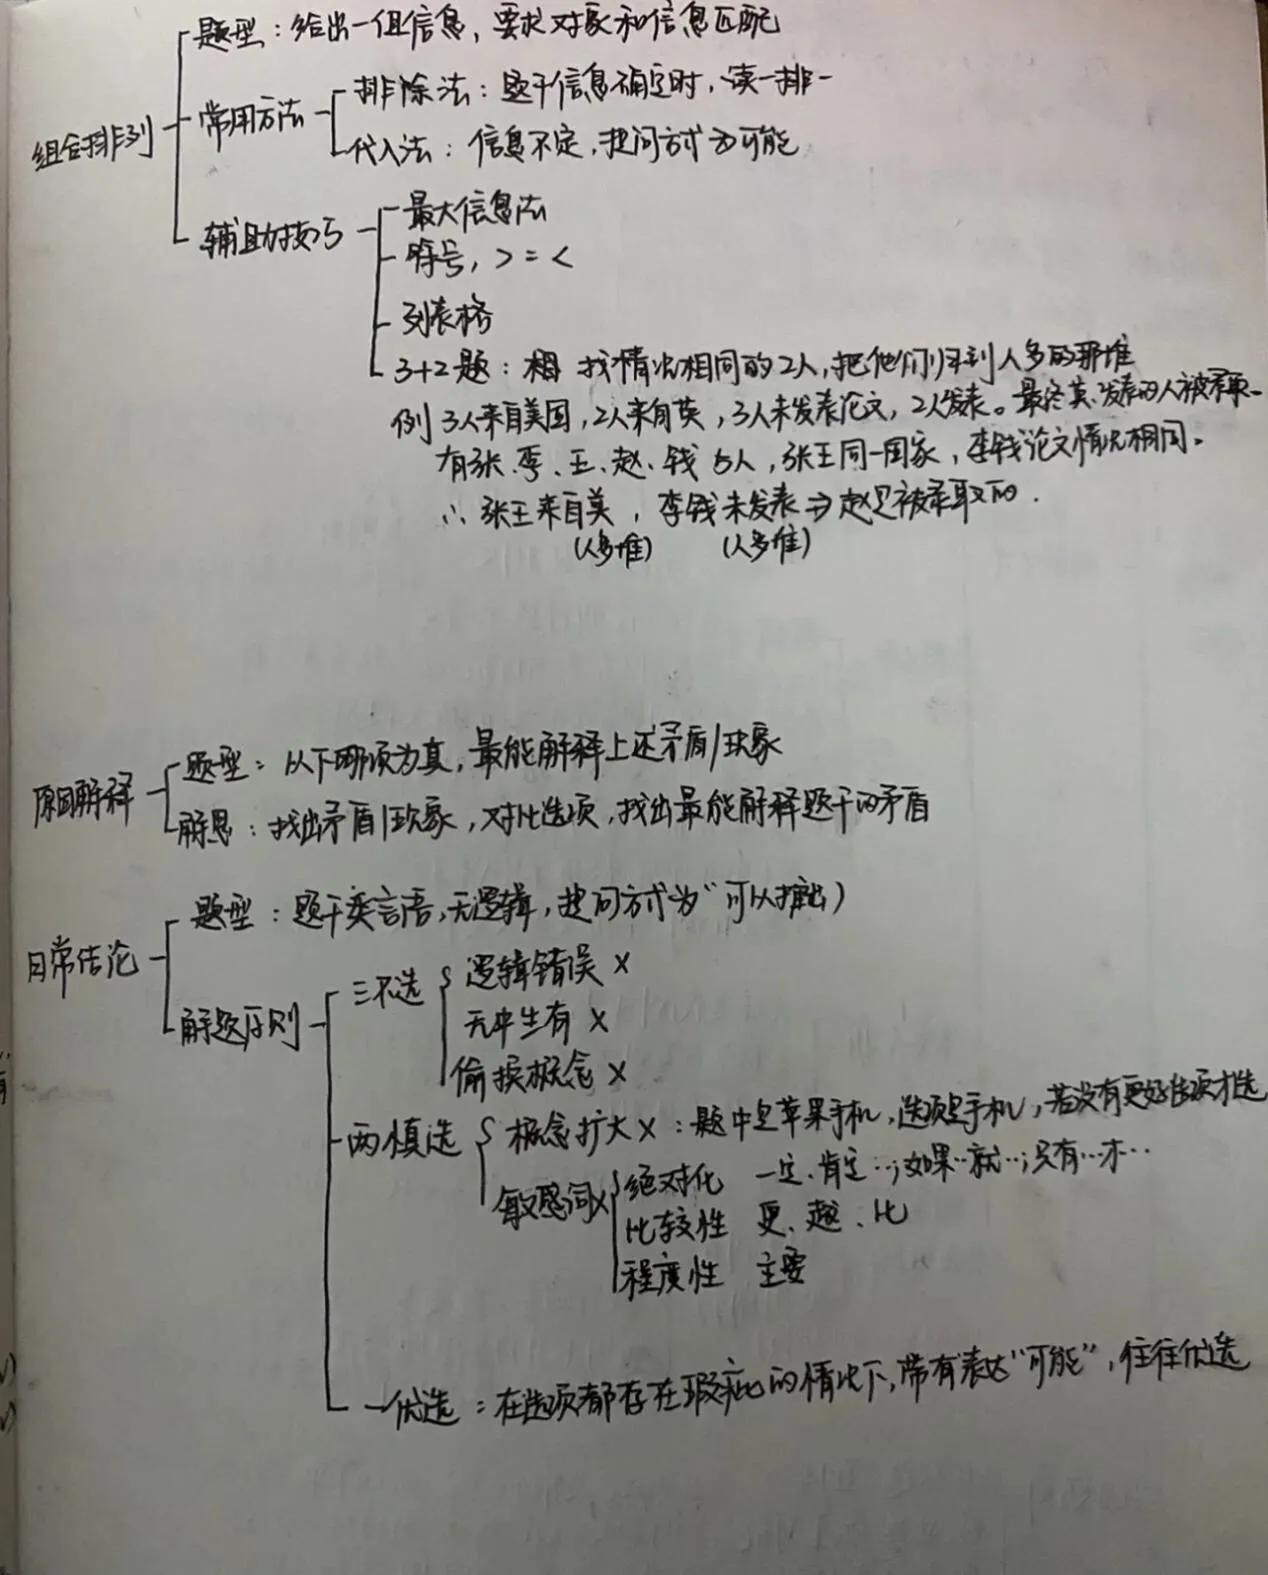 组合排列
题型：给出一组信息，要求对象和信息匹配
常用方法
排除法：题干信息确定时，读一排一
代入法：信息不定，提问方式为可能
辅助技巧
最大信息法
符号，> = <
列表格
3+2题：相 找情况相同的2人，把他们归到人多的那堆
例 3人来自美国，2人来自英，3人未发表论文，2人发表。最终英、发表的人被录取
有张、李、王、赵、钱 5人，张王同一国家，李钱论文情况相同。
∴ 张王来自美，李钱未发表⇒赵是被录取的．
(人多堆) (人多堆)
原因解释
题型：以下哪项为真，最能解释上述矛盾/现象
解思：找出矛盾/现象，对比选项，找出最能解释题干的矛盾
日常结论
题型：题干类言语，无逻辑，提问方式为“可以推出）
解题原则
三不选
逻辑错误 ×
无中生有 ×
偷换概念 ×
两慎选
概念扩大×：题中是苹果手机，选项是手机，若没有更好选项才选
敏感词×
绝对化 一定、肯定…；如果…就…；只有…才…
比较性 更、越、比
程度性 主要
一优选：在选项都存在瑕疵的情况下，带有表达“可能”，往往优选